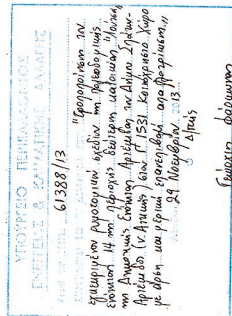 ΥΠΟΥΡΓΕΙΟ ΠΕΡΙΒΑΛΛΟΝΤΟΣ
ΕΝΕΡΓΕΙΑΣ & ΚΛΙΜΑΤΙΚΗΣ ΑΛΛΑΓΗΣ
61388/13
"Τροποποίηση του
εγκεκριμένου ρυμοτομικού σχεδίου της πολεοδομικής
ενότητας 14 της περιοχής δεύτερης κατοικίας
της Δημοτικής Ενότητας Αρτέμιδας του Δήμου Σπάτων-
Αρτέμιδος (ν. Αττικής) στον Γ1531 Κοινόχρηστο Χώρο
με άρση και μερική επανεπιβολή απαλλοτρίωσης"
29 Νοεμβρίου 2013